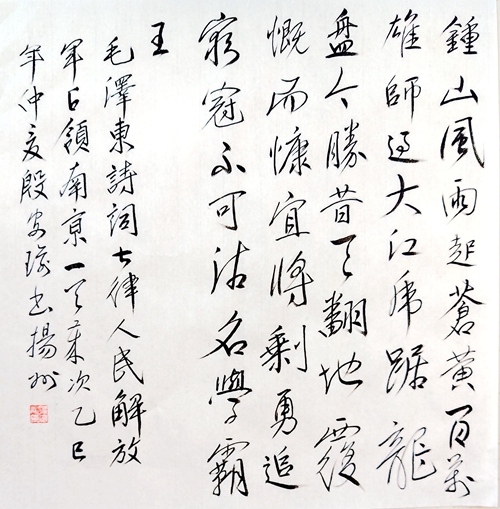 鍾山風雨起蒼黃百萬
雄師過大江虎踞龍
盤今勝昔天翻地覆
慨而慷宜將剩勇追
窮寇不可沽名學霸
王
毛澤東詩詞七律人民解放
軍占領南京一首歲次乙巳
年仲夏殷書揚州